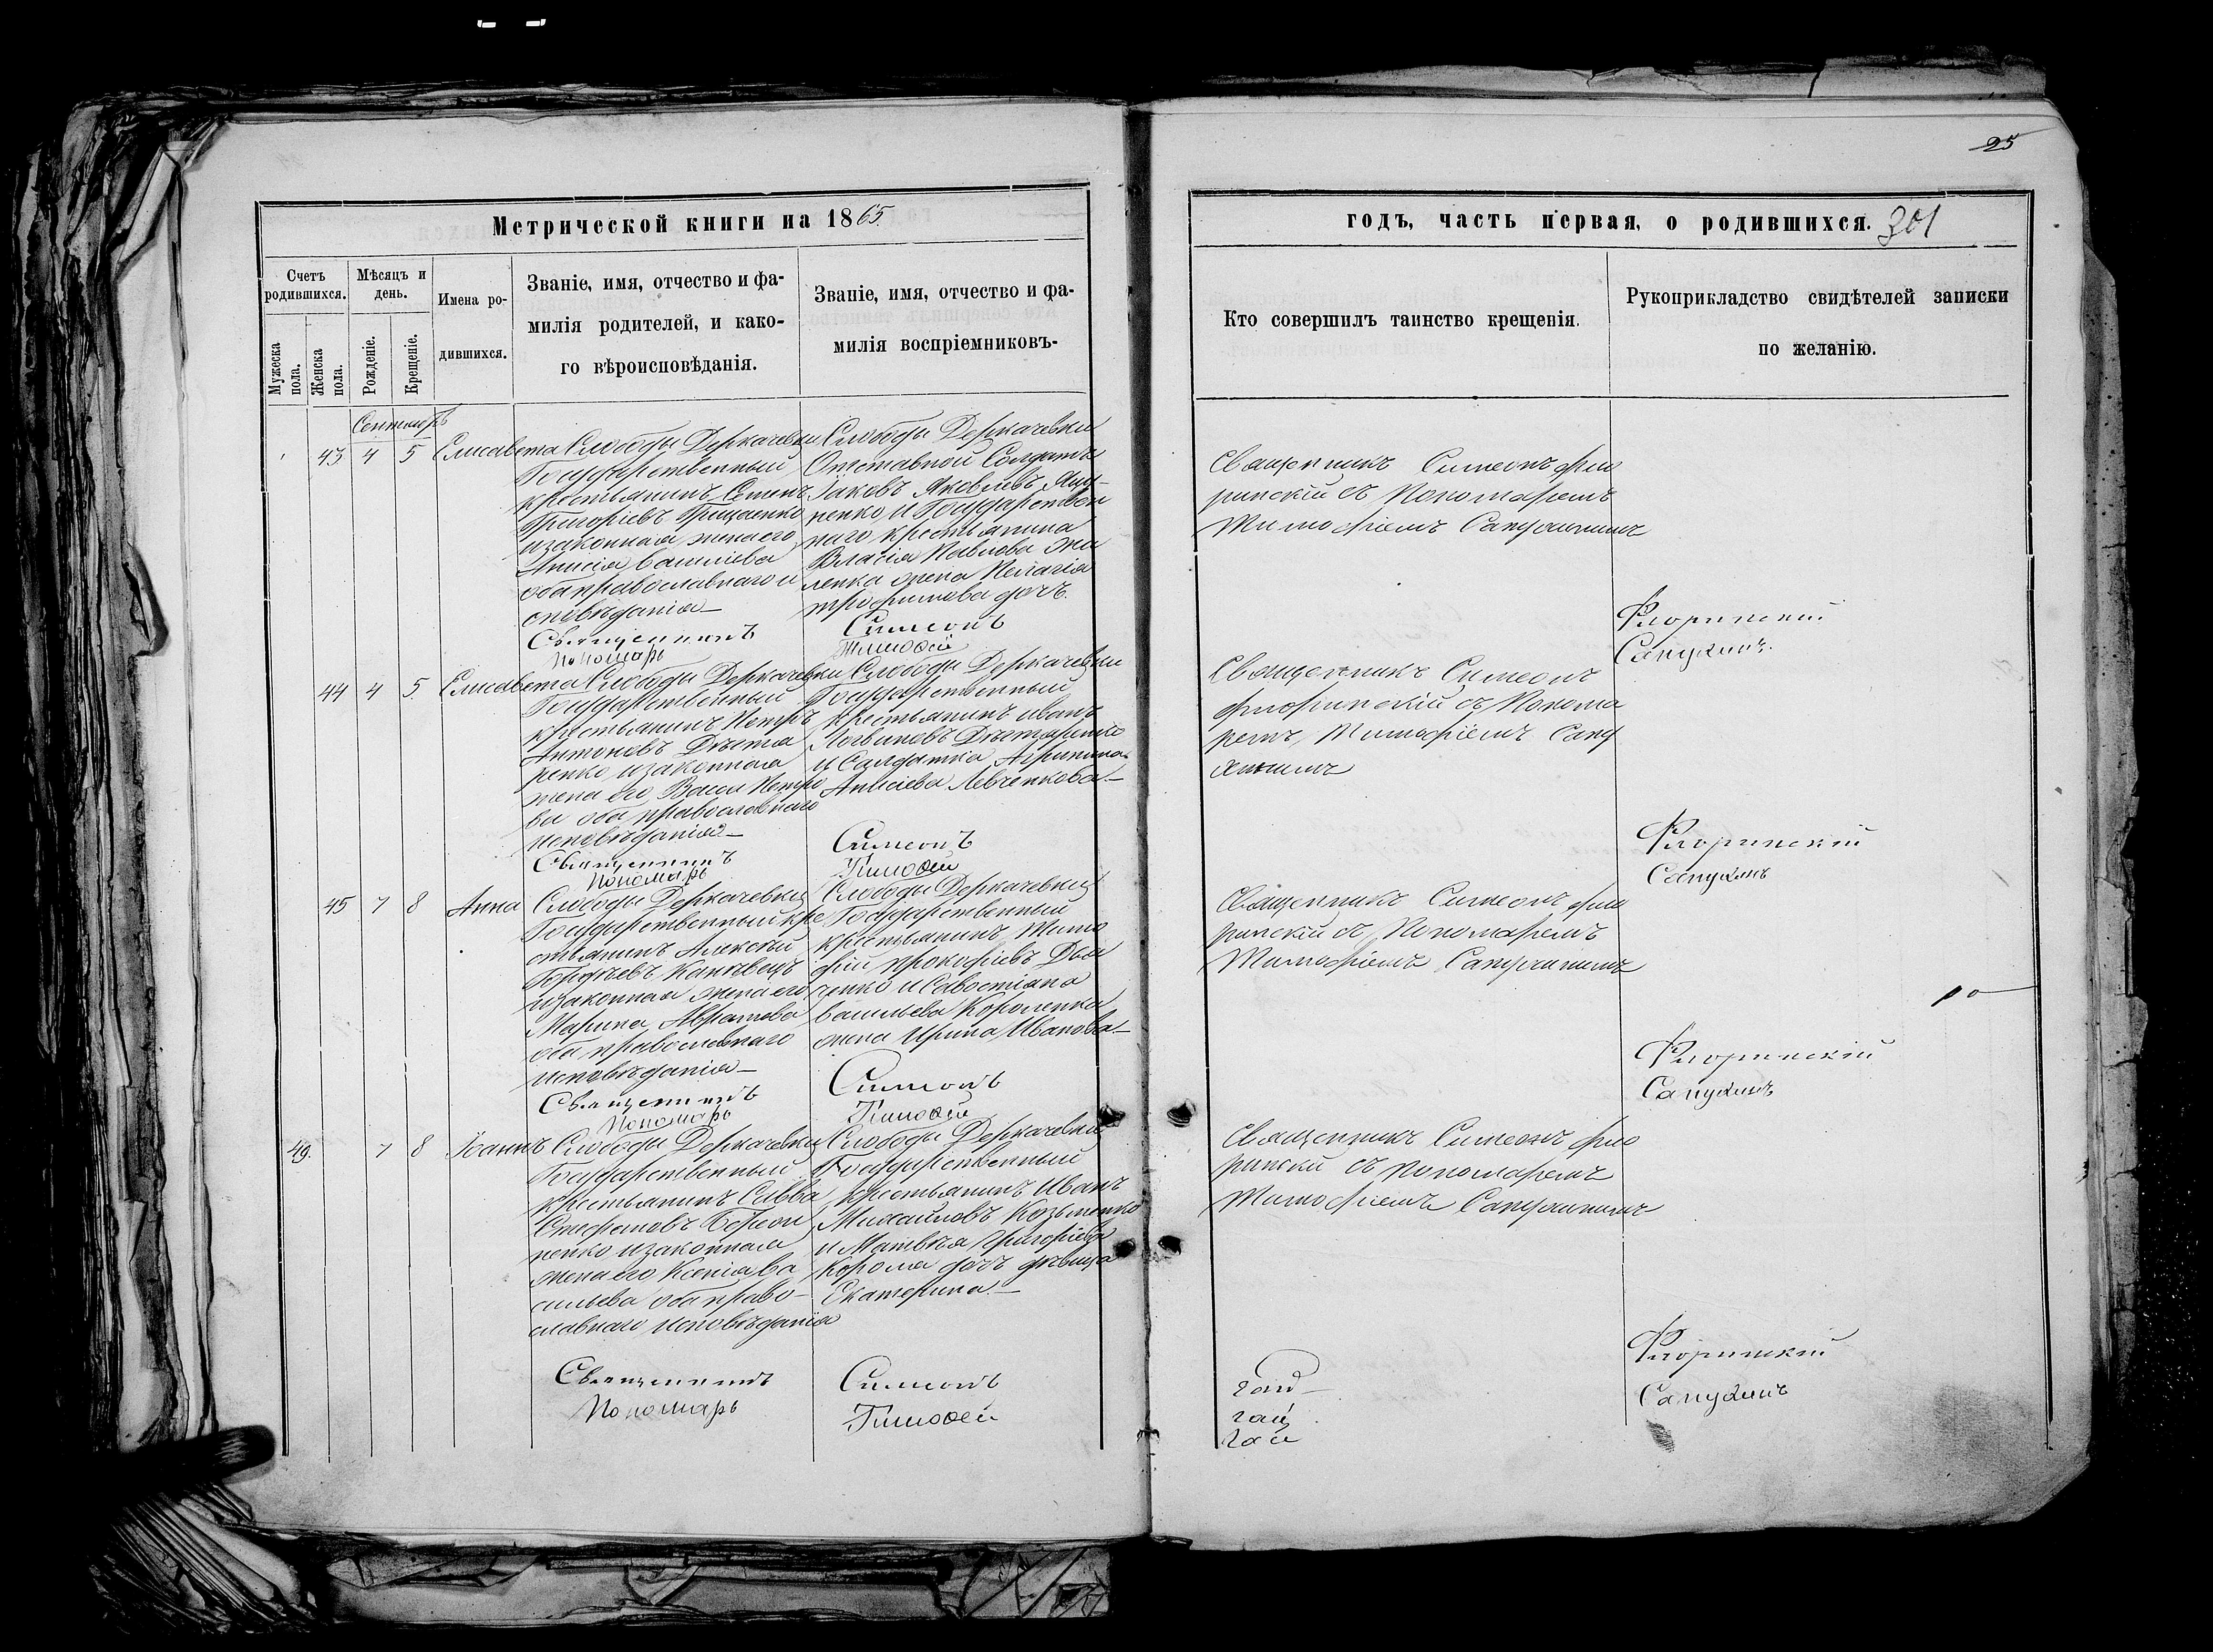 25
Метрической книги на 1865.
годъ, часть первая, о родившихся. 301
Счетъ родившихся.
Мужеска пола.
Женска пола.
Мѣсяцъ и день.
Рожденіе.
Крещеніе.
Имена родившихся.
Званіе, имя, отчество и фа-
милія родителей, и како-
го вѣроисповѣданія.
Званіе, имя, отчество и фа-
милія воспріемниковъ-
Кто совершилъ таинство крещенія.
Рукоприкладство свидѣтелей записки
по желанію.
Сентябрь
43 4 5 Елисавета
Слободы Деркачевки
Государственный
крестьянинъ Семенъ
Григоріевъ Грищенко
и законная жена его
Анисія Василіева
оба православнаго и
сповѣданія
Слободы Деркачевки
Отставной Солдатъ
Іаковъ Яковлевъ
и Государствен
наго крестьянина
Власія Павлова
жена Пелагія
трофимова дочь.
Священникъ Симеонъ фло
ринскій съ Пономаремъ
Тимофіемъ Сапухинымъ
Священникъ Симеонъ Флоринскій
Пономарь Тимофей Сапухинъ.
44 4 5. Елисавета
Слободы Деркачевки
Государственный
крестьянинъ Петръ
Антоновъ Дехтя
ренко и законная
жена его Васса Петро
ва оба православнаго
исповѣданія
Слободы Деркачевки
Государственный
крестьянинъ иванъ
Логвиновъ Дехтяренко
и Салдатка Агрипина
Левченкова
Священникъ Симеонъ
флоринскій съ Понома
ремъ, Тимофіемъ Сапу
хинымъ
Священникъ Симеонъ Флоринскій
Пономарь Тимофей Сапухинъ
45 7 8 Анна
Слободы Деркачевки
Государственный кре
стьянинъ Алексѣй
Гордѣевъ Каневецъ
и законная жена его
Марина Аврамова
оба православнаго
исповѣданія
Слободы Деркачевки
Государственный
крестьянинъ Тимо
фій прокофіевъ Дья
ченко и Савостіана
васильева Короленка
жена Ирина Иванова
Священникъ Симеонъ фло
ринскій съ Пономаремъ
Тимофіемъ Сапухинымъ
Священникъ Симеонъ Флоринскій
Пономарь Тимофей Сапухинъ
49. 7 8 Іоаннъ
Слободы Деркачевки
Государственный
крестьянинъ Савва
Стефановъ
и законная
жена его Ксенія Ва
сильева оба право-
славнаго исповѣданія
Слободы Деркачевки
Государственный
крестьянинъ Иванъ
Михаиловъ Козьменко
и Матвѣя григоріева
Короля дочь дѣвица
Екатерина
Священникъ Симеонъ фло
ринскій съ пономаремъ
Тимофіемъ Сапухинымъ
Священникъ Симеонъ Флоринскій
Пономарь Тимофей Сапухинъ